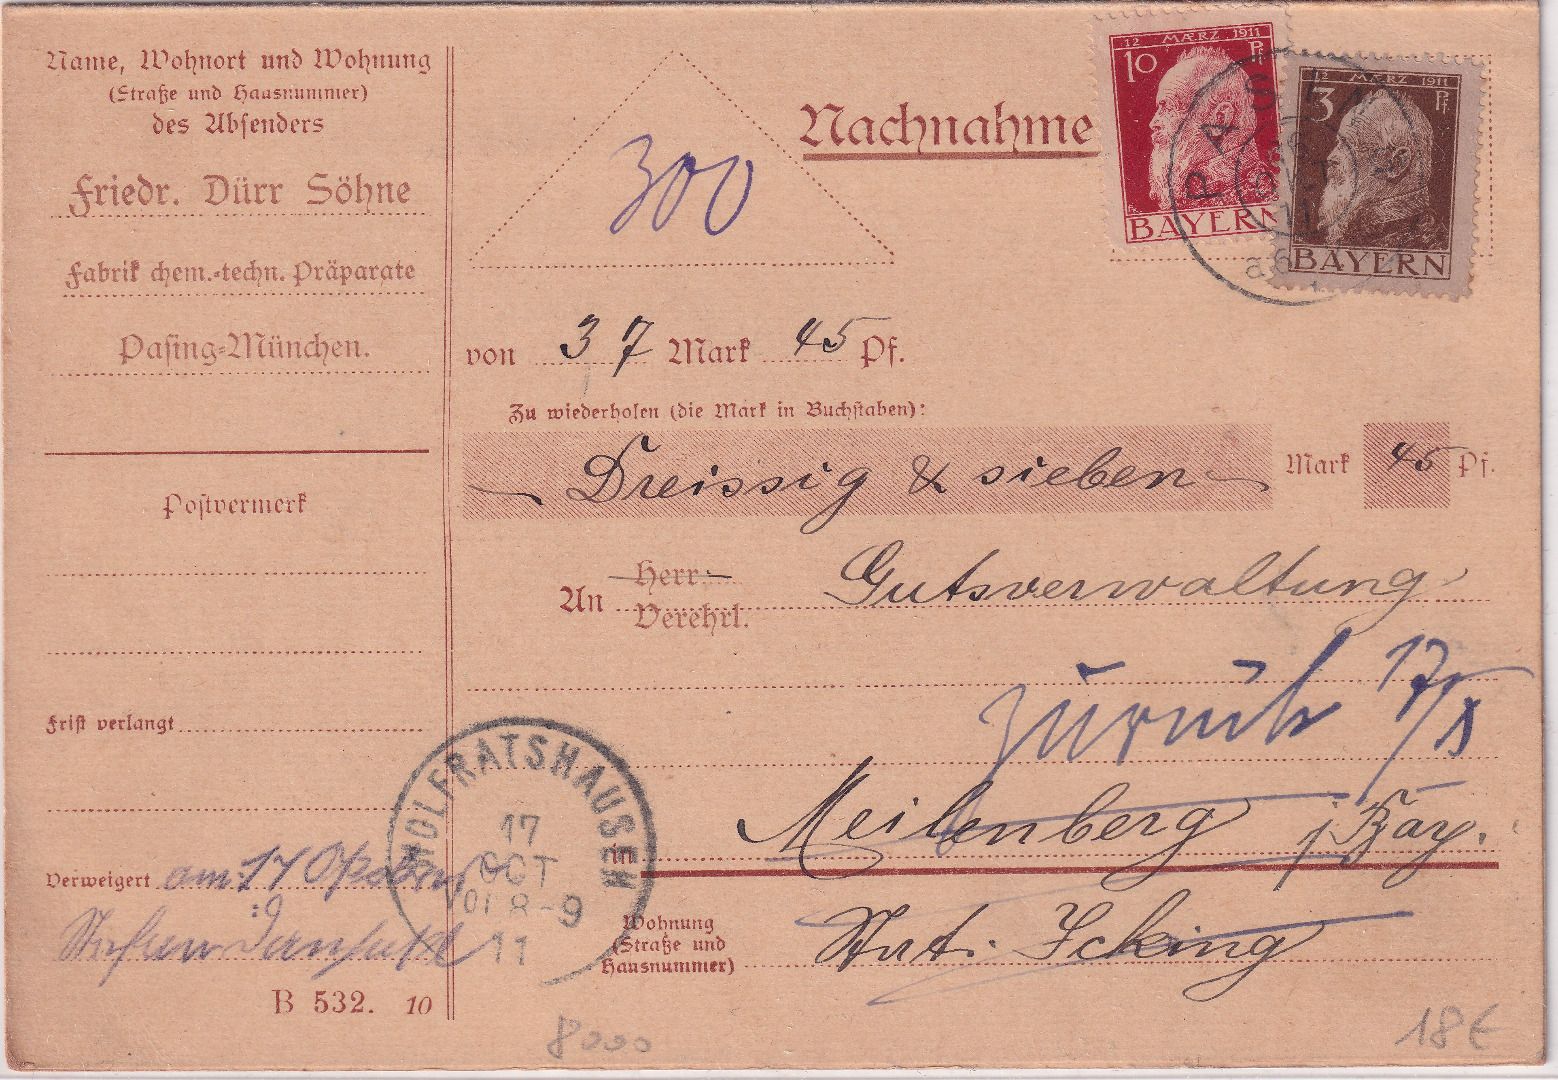 Name, Wohnort und Wohnung
(Straße und Hausnummer)
des Absenders
Friedr. Dürr Söhne
Fabrik chem.-techn. Präparate
Pasing-München.
Postvermerk
Frist verlangt
Verweigert am 17 Oktober
B 532. 10
300
Nachnahme
12 MÆRZ 1911
10 Pf
BAYERN
12 MÆRZ 1911
3 Pf
BAYERN
PASING
von 37 Mark 45 Pf.
Zu wiederholen (die Mark in Buchstaben):
Dreissig & sieben Mark 45 Pf.
An Herr
Verehrl.
Gutsverwaltung
Zurück 17/X
in Meilenberg i/Bay.
Wohnung
(Straße und
Hausnummer)
Stat. Icking
WOLFRATSHAUSEN
17
OCT
8-9
11
8000
18€